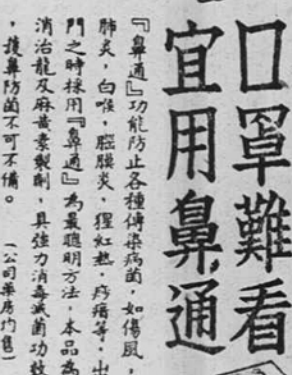 口罩難看
宜用鼻通
『鼻通』功能防止各種傳染病菌，如傷風，
肺炎，白喉，腦膜炎，猩紅熱，痧痦等，出
門之時採用『鼻通』為最聰明方法，本品為
消治龍及麻黃素製劑，具強力消毒滅菌功效
，護鼻防菌不可不備。
（公司藥房均售）